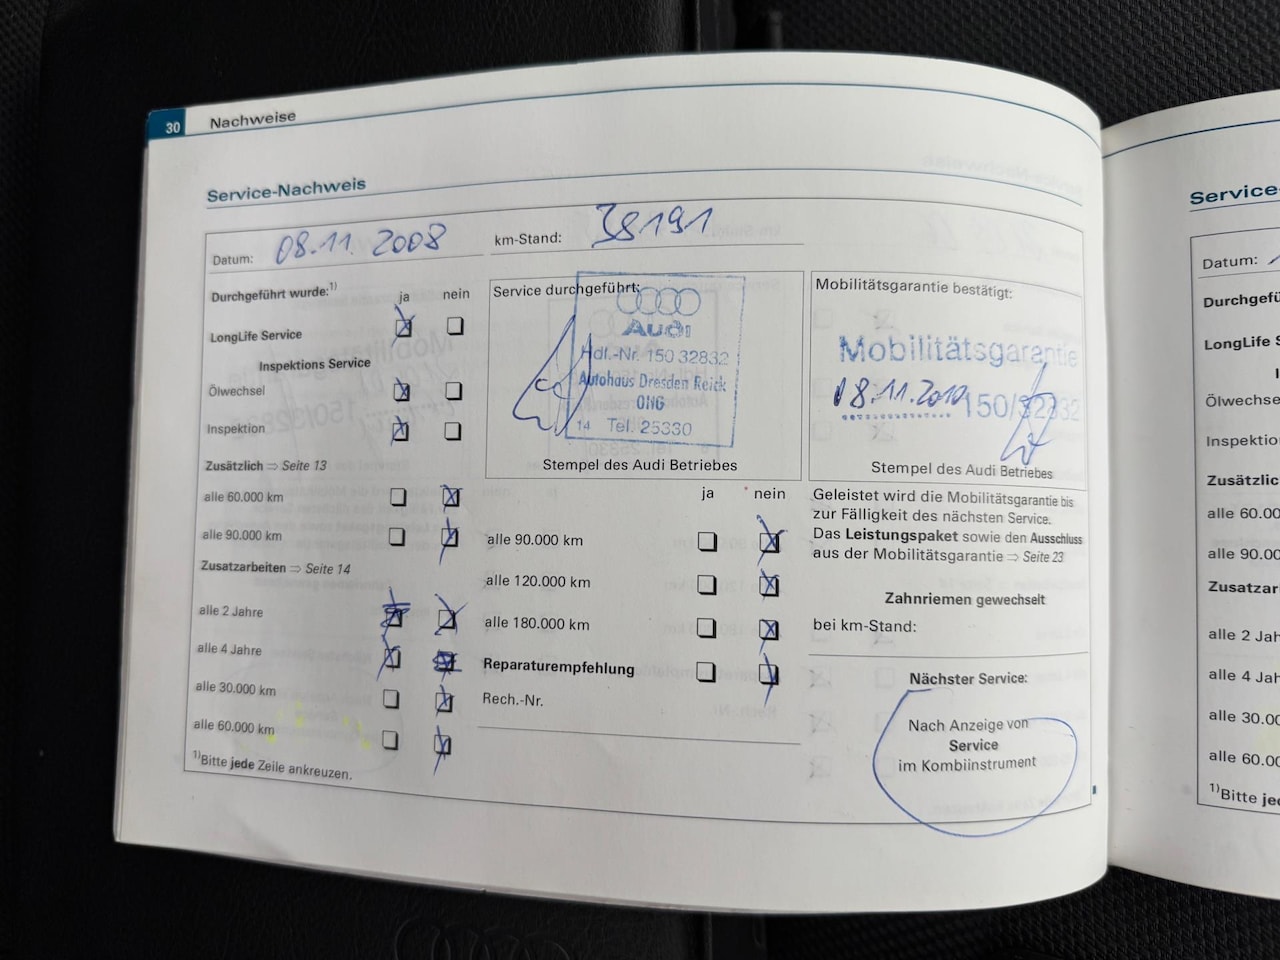 30 Nachweise
Service-Nachweis
Datum: 08.11.2008 km-Stand: 38191
Durchgeführt wurde:1)
ja nein
LongLife Service
Inspektions Service
Ölwechsel
Inspektion
Zusätzlich ⇒ Seite 13
alle 60.000 km
alle 90.000 km
Zusatzarbeiten ⇒ Seite 14
alle 2 Jahre
alle 4 Jahre
alle 30.000 km
alle 60.000 km
1)Bitte jede Zeile ankreuzen.
Service durchgeführt:
Audi
Hdl.-Nr. 150 32832
Autohaus Dresden Reick
OHG
14 Tel. 25330
Stempel des Audi Betriebes
ja nein
alle 90.000 km
alle 120.000 km
alle 180.000 km
Reparaturempfehlung
Rech.-Nr.
Mobilitätsgarantie bestätigt:
Mobilitätsgarantie
08.11.2010 150/32832
Stempel des Audi Betriebes
Geleistet wird die Mobilitätsgarantie bis
zur Fälligkeit des nächsten Service.
Das Leistungspaket sowie den Ausschluss
aus der Mobilitätsgarantie ⇒ Seite 23
Zahnriemen gewechselt
bei km-Stand:
Nächster Service:
Nach Anzeige von
Service
im Kombiinstrument
Service-
Datum:
Durchgefü
LongLife S
I
Ölwechse
Inspektio
Zusätzlic
alle 60.00
alle 90.00
Zusatzar
alle 2 Jah
alle 4 Jah
alle 30.00
alle 60.00
1)Bitte jed